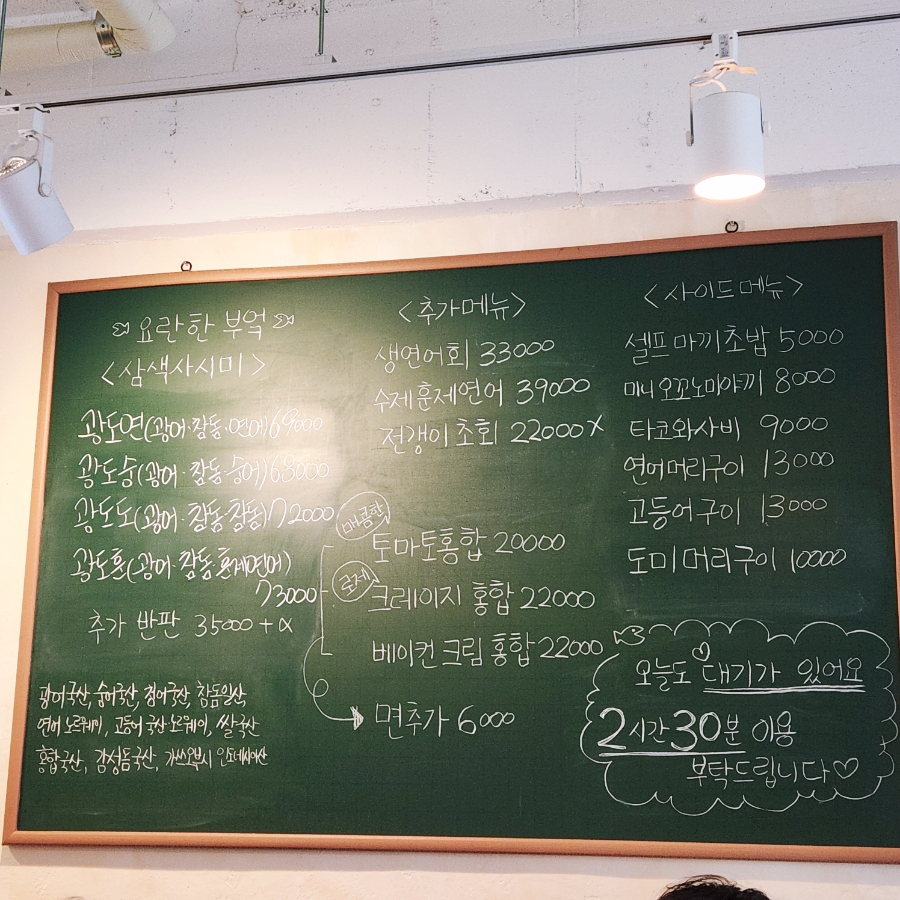 요란한 부엌
<삼색사시미>
광도연(광어·참돔·연어)69000
광도숭(광어·참돔·숭어)68000
광도도(광어·참돔·참돔)72000
광도훈(광어·참돔·훈제연어)
73000
추가 반판 35000+α
광어국산, 숭어국산, 청어국산, 참돔일산,
연어 노르웨이, 고등어 국산 노르웨이, 쌀 국산
홍합국산, 감성돔국산, 가쓰오부시 인도네시아산
<추가메뉴>
생연어회 33000
수제훈제연어 39000
전갱이초회 22000 X
매콤한
토마토홍합 20000
로제
크레이지 홍합 22000
베이컨 크림 홍합 22000
면추가 6000
<사이드메뉴>
셀프마끼초밥 5000
미니오꼬노미야끼 8000
타코와사비 9000
연어머리구이 13000
고등어구이 13000
도미머리구이 10000
오늘도 대기가 있어요
2시간30분 이용
부탁드립니다♡